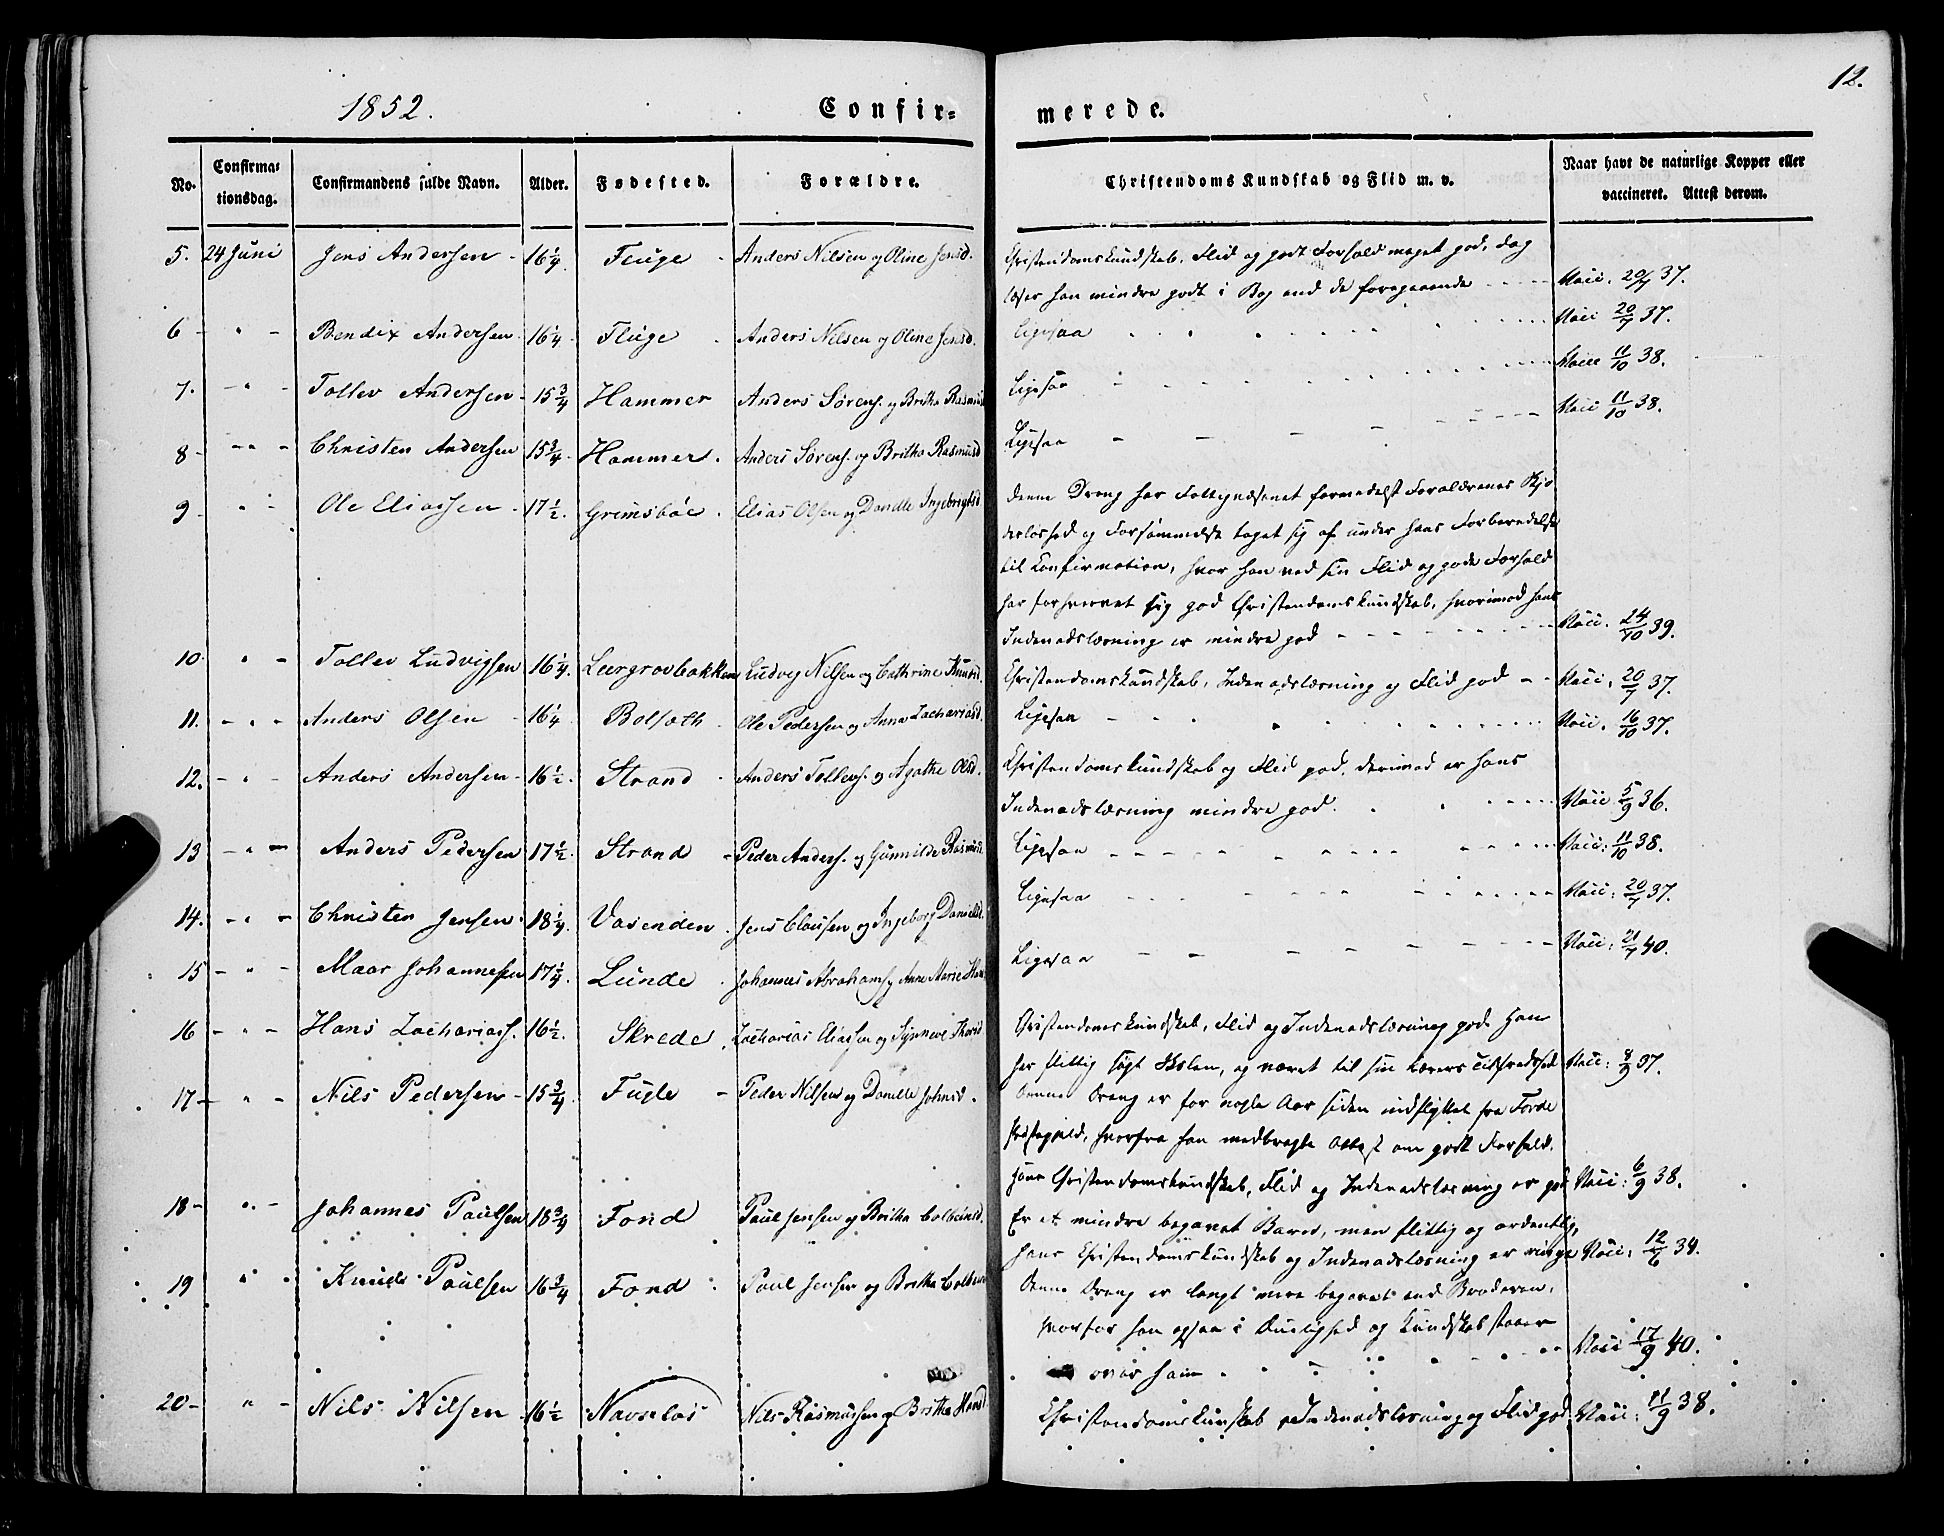 12.
1852. Confir- merede.
No. Confirmationsdag. Confirmandens fulde Navn. Alder. Fødested. Forældre. Christendoms Kundskab og Flid m. v. Naar havt de naturlige Kopper eller vaccineret. Attest derom.
5. 24 Juni Jens Andersen 16 1/4 Fluge Anders Nilsen og Oline Jensd. Christendomskundskab, Flid og godt Forhold meget god, dog
læser han mindre godt i Bog end de foregaaende Vacc. 20/7 37.
6 " Bendix Andersen 16 1/4 Fluge Anders Nilsen og Oline Jensd. Ligesaa Vacc 20/7 37.
7. " Tollev Andersen 15 3/4 Hammer Anders Sørens. og Britha Rasmusd Ligesaa Vacc 11/10 38.
8 " Christen Andersen 15 3/4 Hammer Anders Sørens. og Britha Rasmusd Ligesaa Vacc 11/10 38.
9 " Ole Eliassen 17 1/2 Grimsböe Elias Olsen og Dordle Ingebrigtsd Denne Dreng har Fattigvæsenet formedelst Forældrenes
og Forsømmelse taget sig af under hans Forberedelse
til Confirmation, hvor han ved sin Flid og gode Forhold
har forhvervet sig god Christendomskundskab, hvorimod hans
Indenadslæsning er mindre god Vacc. 24/10 39.
10 " Tollev Ludvigsen 16 1/4 Leergrovbakken Ludvig Nilsen og Cathrine Knudsd. Christendomskundskab, Indenadslæsning og Flid god Vacc. 20/7 37.
11. " Anders Olsen 16 1/4 Bolsæth Ole Pedersen og Anna Zachariasd. Ligesaa Vacc. 16/10 37.
12. " Anders Andersen 16 1/2 Strand Anders Tollevs. og Agathe Olsd. Christendomskundskab og Flid god, derimod er hans
Indenadslæsning mindre god. Vacc 5/9 36.
13 " Anders Pedersen 17 1/2 Strand Peder Anders. og Gunnilde Rasmusd. Ligesaa Vacc: 11/10 38.
14. " Christen Jensen 18 1/4 Vasenden Jens Clausen og Ingeborg Danielsd. Ligesaa Vacc: 20/7 37.
15 " Maar Johannessen 17 1/4 Lunde Johannes Abrahams og Anne Marie Ligesaa Vacc: 21/7 40.
16 " Hans Zachariass. 16 1/2 Skrede Zacharias Eliassen og Synneve Christendomskundskab, Flid og Indenadslæsning god. Han
har flittig søgt Skolen, og været til sin Lærers Tilfredshed Vacc: 8/9 37.
17 " Nils Pedersen 15 3/4 Fugle Peder Nilsen og Dordle Johnsd. Denne Dreng er for nogle Aar siden indflyttet fra Førde
Præstegield, hvorfra han medbragte Attest om godt Forhold.
Hans Christendomskundskab, Flid og Indenadslæsning er god Vacc: 6/9 38.
18 " Johannes Paulsen 18 3/4 Fond Paul Jensen og Britha Colbeinsd. Er et mindre begavet Barn, men flittig og ordentlig,
hans Christendomskundskab og Indenadslæsning er ringe Vacc: 12/6 34.
19 " Knud Paulsen 16 3/4 Fond Paul Jensen og Britha Colbeins Denne Dreng er langt mere begavet end Broderen,
hvorfor han ogsaa i Duelighed og Kundskab staaer
over ham Vacc 17/9 40.
20 " Nils Nilsen 16 1/2 Navseløs Nils Rasmussen og Britha Hansd Christendomskundskab Indenadslæsning og Flid god Vacc: 11/9 38.